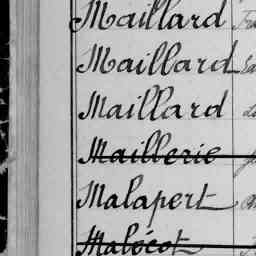 Maillard
Maillard
Maillard
Maillerie
Malapert
Malócot